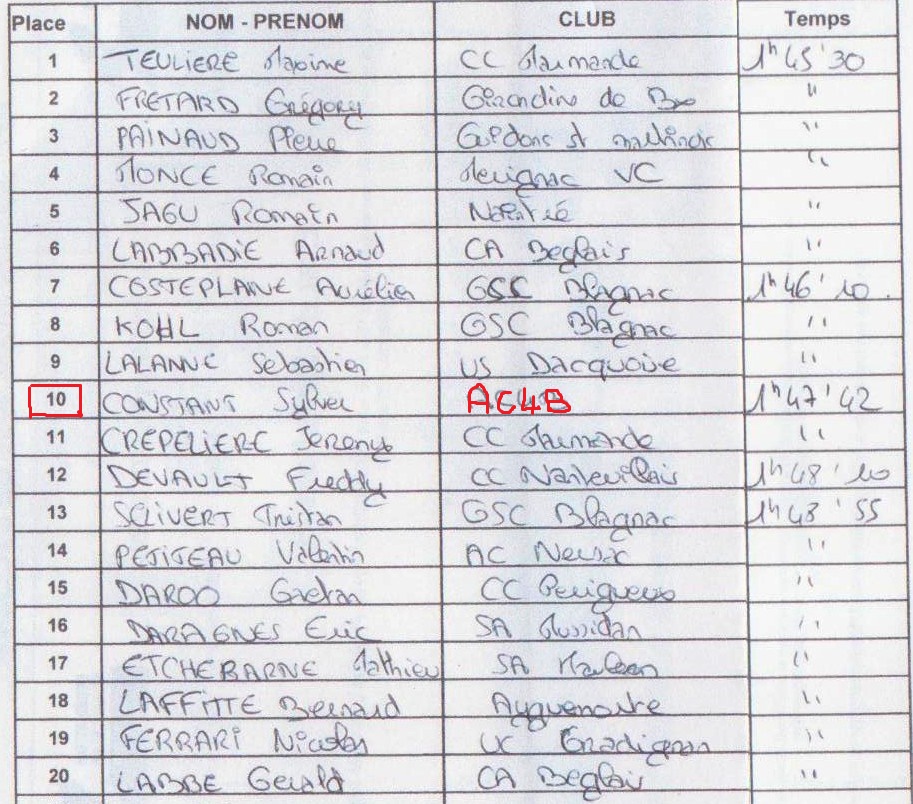 Place NOM - PRENOM CLUB Temps
1 TEULIERE Maxime CC Marmande 1h45'30
2 FRETARD Grégory Girondins de Bx "
3 PAINAUD Pierre Guidons st "
4 MONCE Romain Merignac VC "
5 JAGU Romain "
6 LABBADIE Arnaud CA Beglais "
7 COSTEPLANE Aurélien GSC Blagnac 1h46'10
8 KOHL Roman GSC Blagnac "
9 LALANNE Sebastien US Dacquoise "
10 CONSTANT Sylver AG4B 1h47'42
11 CREPELIERE Jeremy CC Marmande "
12 DEVAULT Freddy CC 1h48'10
13 Tristan GSC Blagnac 1h48'55
14 PETITEAU Valentin AC "
15 DAROO Gaetan CC Perigueux "
16 DARAGNES Eric SA Mussidan "
17 ETCHEBARNE Mathieu SA Mauleon "
18 LAFFITTE Bernard "
19 FERRARI Nicolas UC Gradignan "
20 LABBE Gerald CA Beglais "